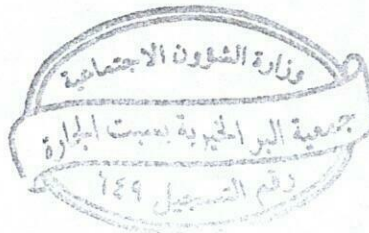 وزارة الشؤون الاجتماعية
جمعية البر الخيرية بميت الجارة
رقم التسجيل ١٤٩